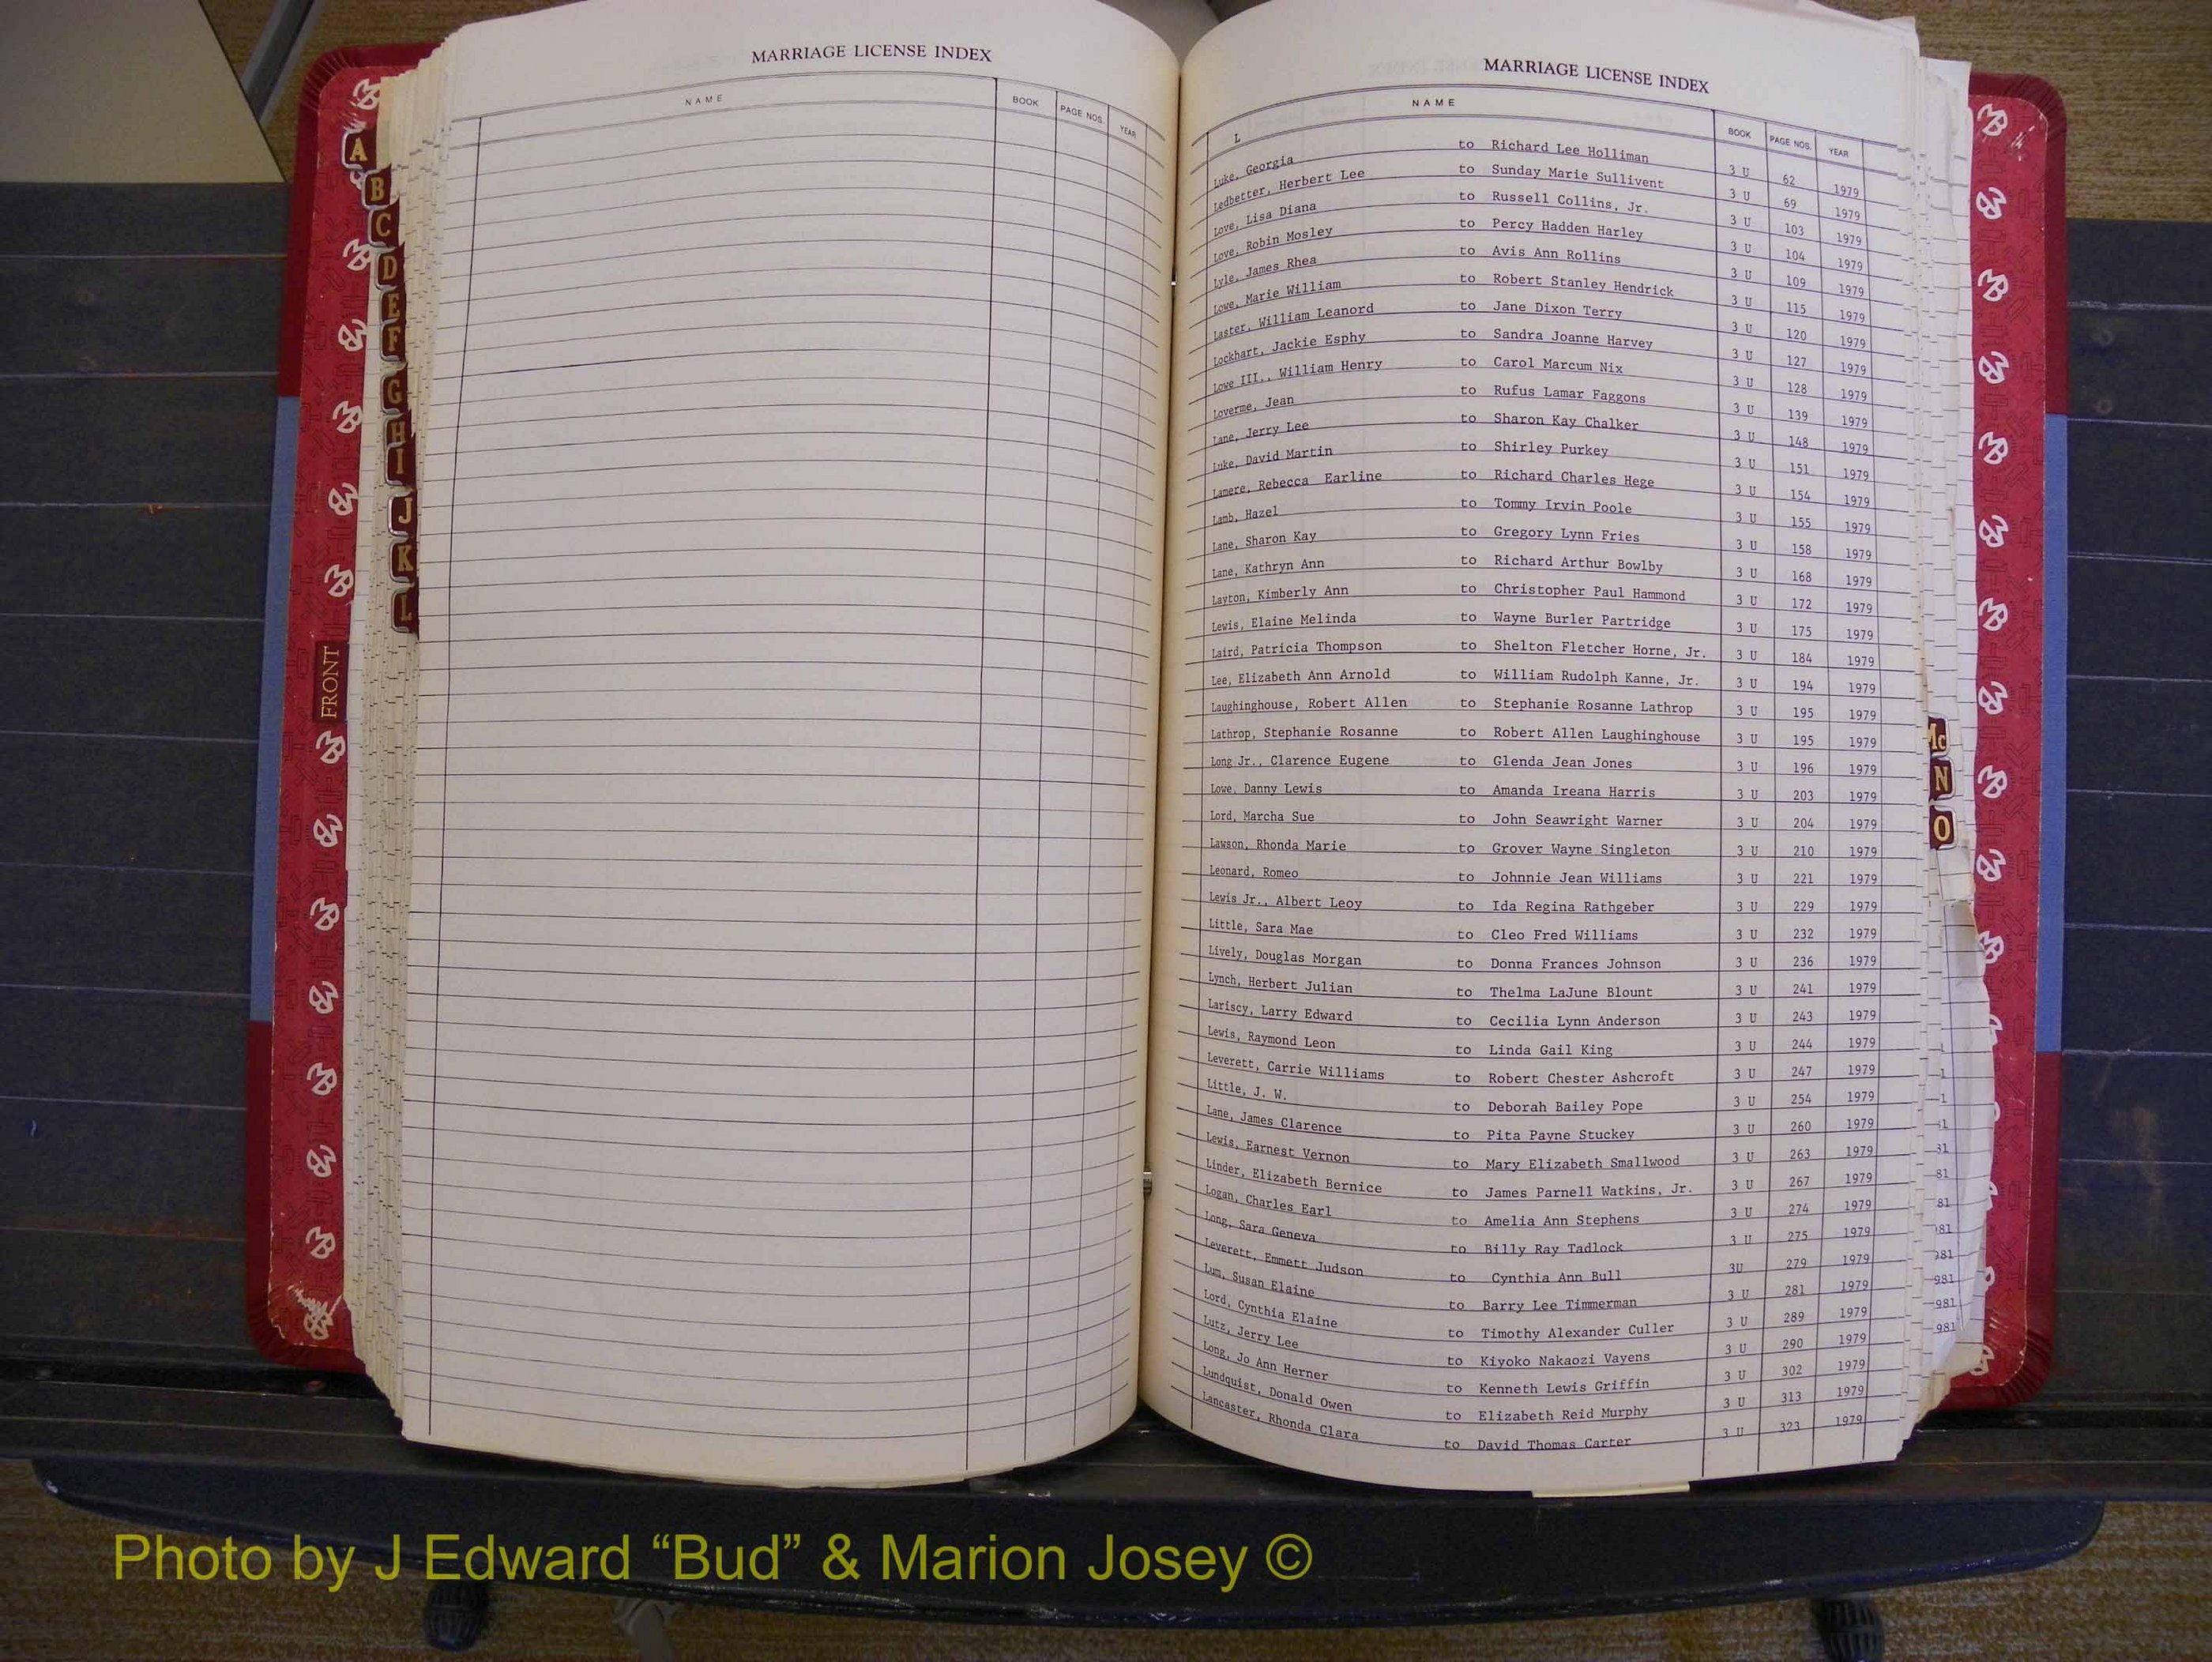 MARRIAGE LICENSE INDEX
NAME BOOK PAGE NOS. YEAR
A
B
C
D
E
F
G
H
I
J
K
L
FRONT
MARRIAGE LICENSE INDEX
NAME BOOK PAGE NOS. YEAR
L
Luke, Georgia to Richard Lee Holliman 3 U 62 1979
Ledbetter, Herbert Lee to Sunday Marie Sullivent 3 U 69 1979
Love, Lisa Diana to Russell Collins, Jr. 3 U 103 1979
Love, Robin Mosley to Percy Hadden Harley 3 U 104 1979
Lyle, James Rhea to Avis Ann Rollins 3 U 109 1979
Lowe, Marie William to Robert Stanley Hendrick 3 U 115 1979
Laster, William Leanord to Jane Dixon Terry 3 U 120 1979
Lockhart, Jackie Esphy to Sandra Joanne Harvey 3 U 127 1979
Lowe III., William Henry to Carol Marcum Nix 3 U 128 1979
Loverme, Jean to Rufus Lamar Faggons 3 U 139 1979
Lane, Jerry Lee to Sharon Kay Chalker 3 U 148 1979
Luke, David Martin to Shirley Purkey 3 U 151 1979
Lamere, Rebecca Earline to Richard Charles Hege 3 U 154 1979
Lamb, Hazel to Tommy Irvin Poole 3 U 155 1979
Lane, Sharon Kay to Gregory Lynn Fries 3 U 158 1979
Lane, Kathryn Ann to Richard Arthur Bowlby 3 U 168 1979
Layton, Kimberly Ann to Christopher Paul Hammond 3 U 172 1979
Lewis, Elaine Melinda to Wayne Burler Partridge 3 U 175 1979
Laird, Patricia Thompson to Shelton Fletcher Horne, Jr. 3 U 184 1979
Lee, Elizabeth Ann Arnold to William Rudolph Kanne, Jr. 3 U 194 1979
Laughinghouse, Robert Allen to Stephanie Rosanne Lathrop 3 U 195 1979
Lathrop, Stephanie Rosanne to Robert Allen Laughinghouse 3 U 195 1979
Long Jr., Clarence Eugene to Glenda Jean Jones 3 U 196 1979
Lowe, Danny Lewis to Amanda Ireana Harris 3 U 203 1979
Lord, Marcha Sue to John Seawright Warner 3 U 204 1979
Lawson, Rhonda Marie to Grover Wayne Singleton 3 U 210 1979
Leonard, Romeo to Johnnie Jean Williams 3 U 221 1979
Lewis Jr., Albert Leoy to Ida Regina Rathgeber 3 U 229 1979
Little, Sara Mae to Cleo Fred Williams 3 U 232 1979
Lively, Douglas Morgan to Donna Frances Johnson 3 U 236 1979
Lynch, Herbert Julian to Thelma LaJune Blount 3 U 241 1979
Lariscy, Larry Edward to Cecilia Lynn Anderson 3 U 243 1979
Lewis, Raymond Leon to Linda Gail King 3 U 244 1979
Leverett, Carrie Williams to Robert Chester Ashcroft 3 U 247 1979
Little, J. W. to Deborah Bailey Pope 3 U 254 1979
Lane, James Clarence to Pita Payne Stuckey 3 U 260 1979
Lewis, Earnest Vernon to Mary Elizabeth Smallwood 3 U 263 1979
Linder, Elizabeth Bernice to James Parnell Watkins, Jr. 3 U 267 1979
Logan, Charles Earl to Amelia Ann Stephens 3 U 274 1979
Long, Sara Geneva to Billy Ray Tadlock 3 U 275 1979
Leverett, Emmett Judson to Cynthia Ann Bull 3U 279 1979
Lum, Susan Elaine to Barry Lee Timmerman 3 U 281 1979
Lord, Cynthia Elaine to Timothy Alexander Culler 3 U 289 1979
Lutz, Jerry Lee to Kiyoko Nakaozi Vayens 3 U 290 1979
Long, Jo Ann Herner to Kenneth Lewis Griffin 3 U 302 1979
Lundquist, Donald Owen to Elizabeth Reid Murphy 3 U 313 1979
Lancaster, Rhonda Clara to David Thomas Carter 3 U 323 1979
Mc
N
O
81
81
981
981
981
Photo by J Edward “Bud” & Marion Josey ©